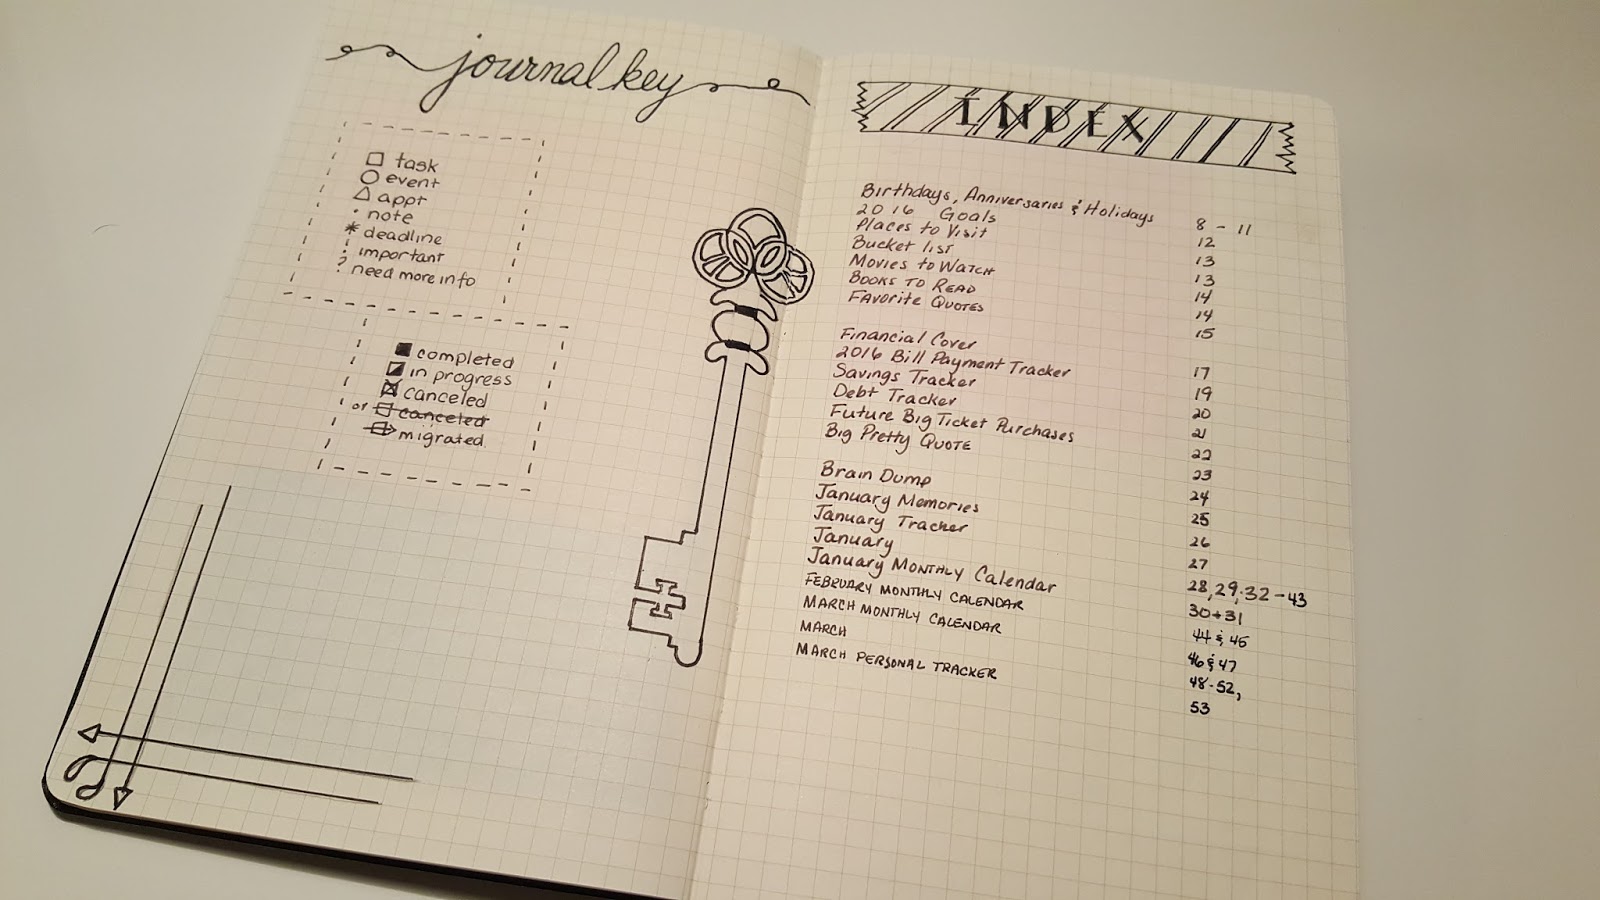 journal key
task
event
appt
note
* deadline
! important
? need more info
completed
in progress
canceled
or canceled
migrated.
INDEX
Birthdays, Anniversaries & Holidays
2016 Goals
Places to Visit
Bucket list
Movies to Watch
Books to Read
Favorite Quotes
Financial Cover
2016 Bill Payment Tracker
Savings Tracker
Debt Tracker
Future Big Ticket Purchases
Big Pretty Quote
Brain Dump
January Memories
January Tracker
January
January Monthly Calendar
FEBRUARY MONTHLY CALENDAR
MARCH MONTHLY CALENDAR
MARCH
MARCH PERSONAL TRACKER
8 - 11
12
13
13
14
14
15
17
19
20
21
22
23
24
25
26
27
28, 29, 32-43
30+31
44 & 45
46 & 47
48-52,
53